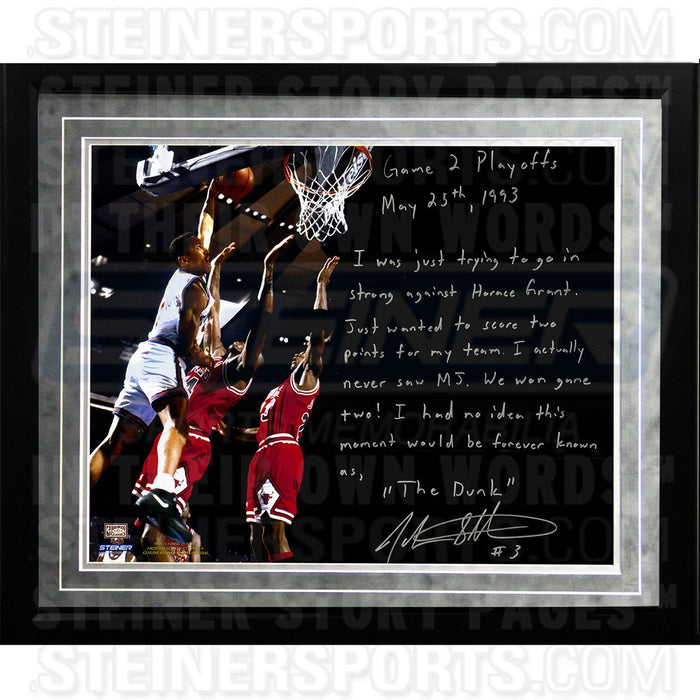 .STEINERSPORTS.COM
STEINER STORY PAGES™
IN THEIR OWN WORDS™
Game 2 Playoffs
May 25th, 1993
I was just trying to go in
strong against Horace Grant.
Just wanted to score two
points for my team. I actually
never saw MJ. We won game
two! I had no idea this
moment would be forever known
as,
"The Dunk"
#3
STEINER
SPORTS MEMORABILIA
STEINER
IN THEIR OWN WORDS™
STEINER STORY PAGES™
.STEINERSPORTS.COM